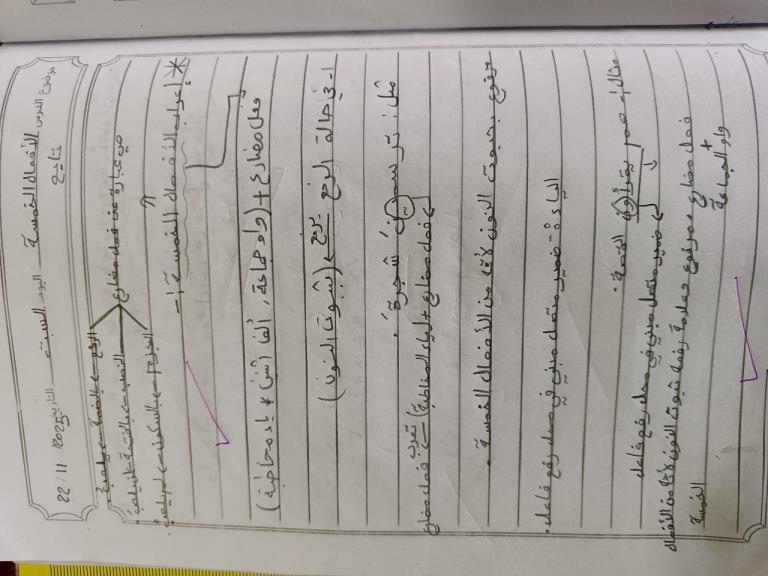 موضوع الدرس الأفعال الخمسة اليوم السبت التاريخ 22/11/2025
تابع
الرفع ← الضمة ← يلعبُ
هي عبارة عن فعل مضارع النصب ← بالفتحة لن يلعبَ
الجزم ← بالسكون ← لم يلعبْ
* إعراب الأفعال الخمسة :-
فعل مضارع + (واو جماعة، ألف اثنين + ياء مخاطبة)
1- في حالة الرفع يرفع ← (ثبوت النون)
مثل : ترسمين شجرةً .
فعل مضارع + (ياء المخاطبة) تعرب ← فعل مضارع
مرفوع بثبوت النون لأنه من الأفعال الخمسة .
الياء :- ضمير متصل مبني في محل رفع فاعل .
مثال :- هم يقرأون القصة .
ضمير متصل مبني في محل رفع فاعل
فعل مضارع مرفوع وعلامة رفعه ثبوت النون لأنه من الأفعال
الخمسة
+
واو الجماعة